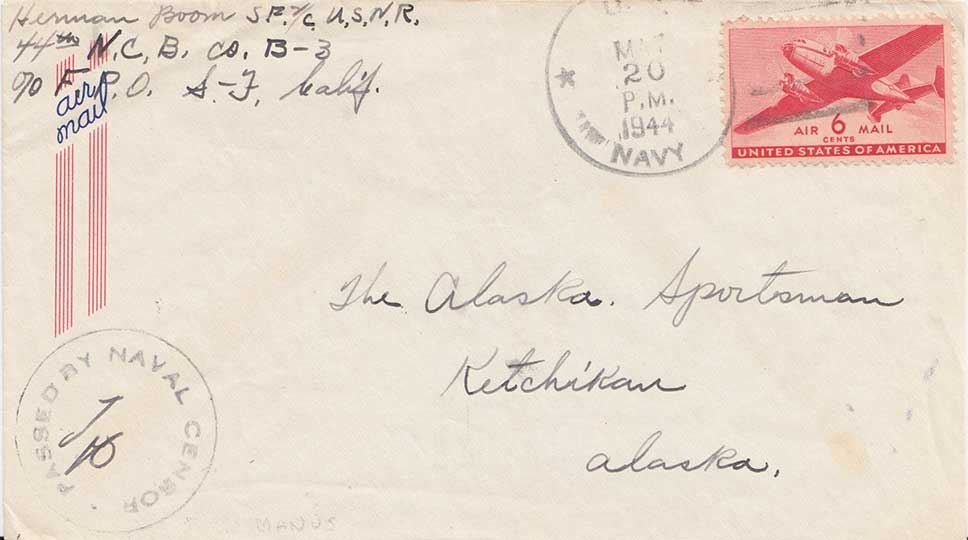 Herman Boom SF. 1/c U.S.N.R.
44th N.C.B. Co. B-3
c/o F.P.O. S-F, Calif.
air mail
NAVY
20
P.M.
1944
AIR 6 MAIL
CENTS
UNITED STATES OF AMERICA
The Alaska. Sportsman
Ketchikan
alaska.
PASSED BY NAVAL CENSOR
MANUS